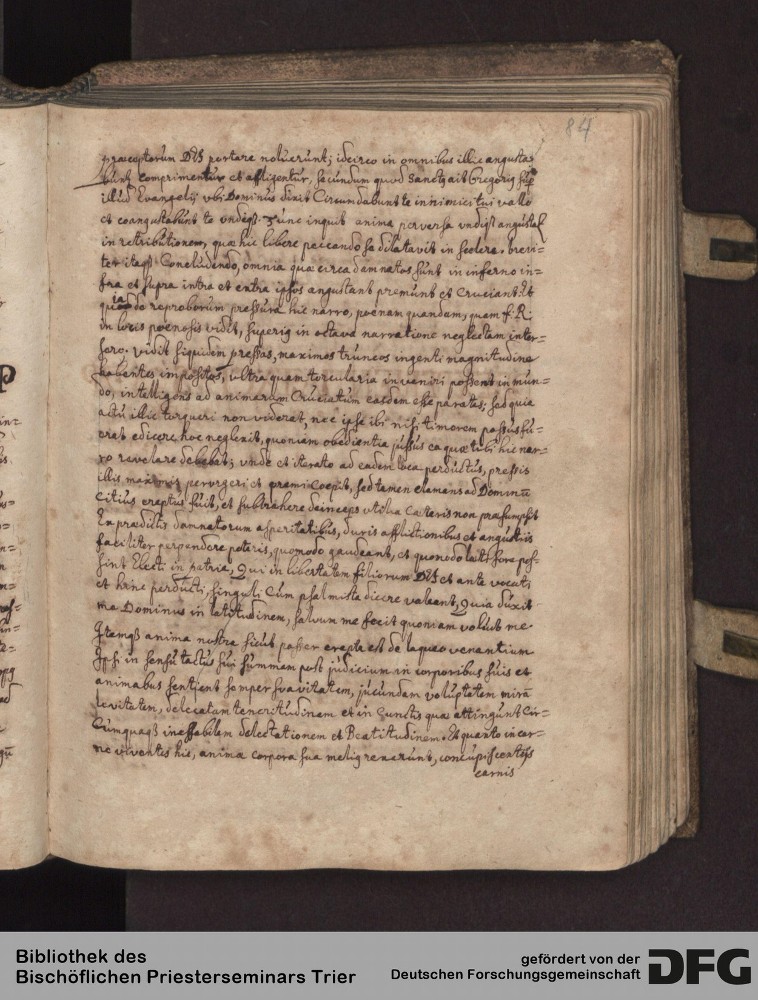 84
præceptorum DEI portare noluerunt; idcirco in omnibus illic angusta
buntʒ comprimentur et affligentur, secundum quod Sanctꝰ ait Gregoriꝰ sup̄
illud Evangelij vbi Dominus dixit Circumdabunt te inimici tui vallo
et coangustabunt te vndeqꝫ. Tunc inquit anima perversa vndiqꝫ angustat
in retributionem, quæ hic libere peccando se dilatavit in scelera. brevi=
ter itaqꝫ Concludendo, omnia quæ circa damnatos sunt in inferno in=
fra et supra intra et extra ipsos angustant premunt et cruciant. Et
quia de reproborum pressura hic narro, pœnam quandam, quam f. R.
in locis pœnosis vidit, superiꝰ in octava narratione neglectam inter=
sero. vidit siquidem pressas, maximos truncos ingenti magnitudine
habentes impositos, vltra quam torcularia inveniri possent in mun=
do, intelligens ad animarum Cruciatum easdem esse paratas; sed quia
actu illic torqueri non viderat, nec ipse ibi nisi timorem passus fu=
erat edicere hoc neglexit, quoniam obedientia jussus ea quæ tibi hic nar=
ro revelare debebat; vnde et iterato ad eadem loca perductus, pressis
illis maximis pervrgeri et premi Coepit, sed tamen clamans ad Dominū
Citius ereptus fuit, et subtrahere deinceps vtilia Cæteris non præsumpsit
Ex prædictis damnatorum asperitatibus, duris afflictionibus et angustiis
faciliter perpendere poteris, quomodo gaudeant, et quomodo læti fore pos=
sint Electi in patria, Qui in libertatem filiorum DEI et ante vocati
et hinc perducti, singuli Cum psalmista dicere valeant, Quia duxit
me Dominus in latitudinem, salvum me fecit quoniam voluit me
Itemqꝫ anima nostra sicut passer erepta est de laqueo venantium
Ipsi in sensu tactus sui summam post judicium in corporibus suis et
animabus sentient semper suavitatem, jucundam voluptatem miram
levitatem, delicatam teneritudinem et in Cunctis quæ attingunt Cir=
Cumquaqꝫ ineffabilem delectationem et Beatitudinem. Et quanto in car=
ne viventes hic, anima corpora sua meliꝰ rexerunt, concupiscentijs
carnis
Bibliothek des
Bischöflichen Priesterseminars Trier
gefördert von der
Deutschen Forschungsgemeinschaft
DFG